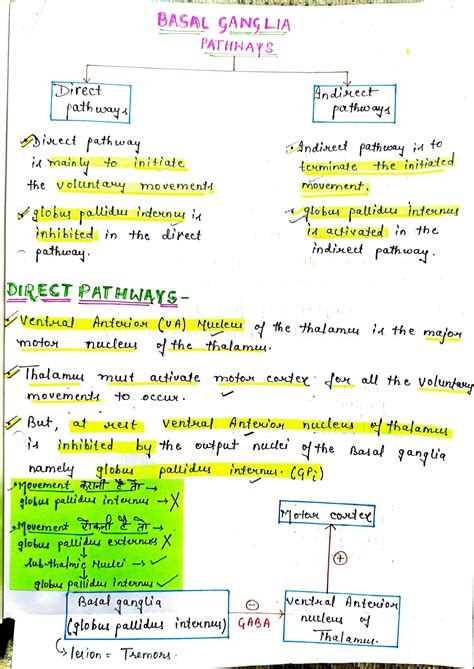 BASAL GANGLIA
PATHWAYS
Direct
pathways
Indirect
pathways
Direct pathway
is mainly to initiate
the voluntary movements
globus pallidus internus is
inhibited in the direct
pathway.
Indirect pathway is to
terminate the initiated
movement.
globus pallidus internus
is activated in the
indirect pathway.
DIRECT PATHWAYS-
Ventral Anterior (VA) Nucleus of the thalamus is the major
motor nucleus of the thalamus.
Thalamus must activate motor cortex for all the voluntary
movements to occur.
But, at rest ventral Anterior nucleus of thalamus
is inhibited by the output nuclei of the Basal ganglia
namely globus pallidus internus. (GPi)
Movement करानी है तो →
globus pallidus internus → X
Movement रोकनी है तो →
globus pallidus externus X
↓
Sub-thalmic Nuclei → ✓
↓
globus pallidus internus ✓
Motor cortex
+
Basal ganglia
(globus pallidus internus)
−
GABA
Ventral Anterior
nucleus of
Thalamus.
lesion = Tremors.